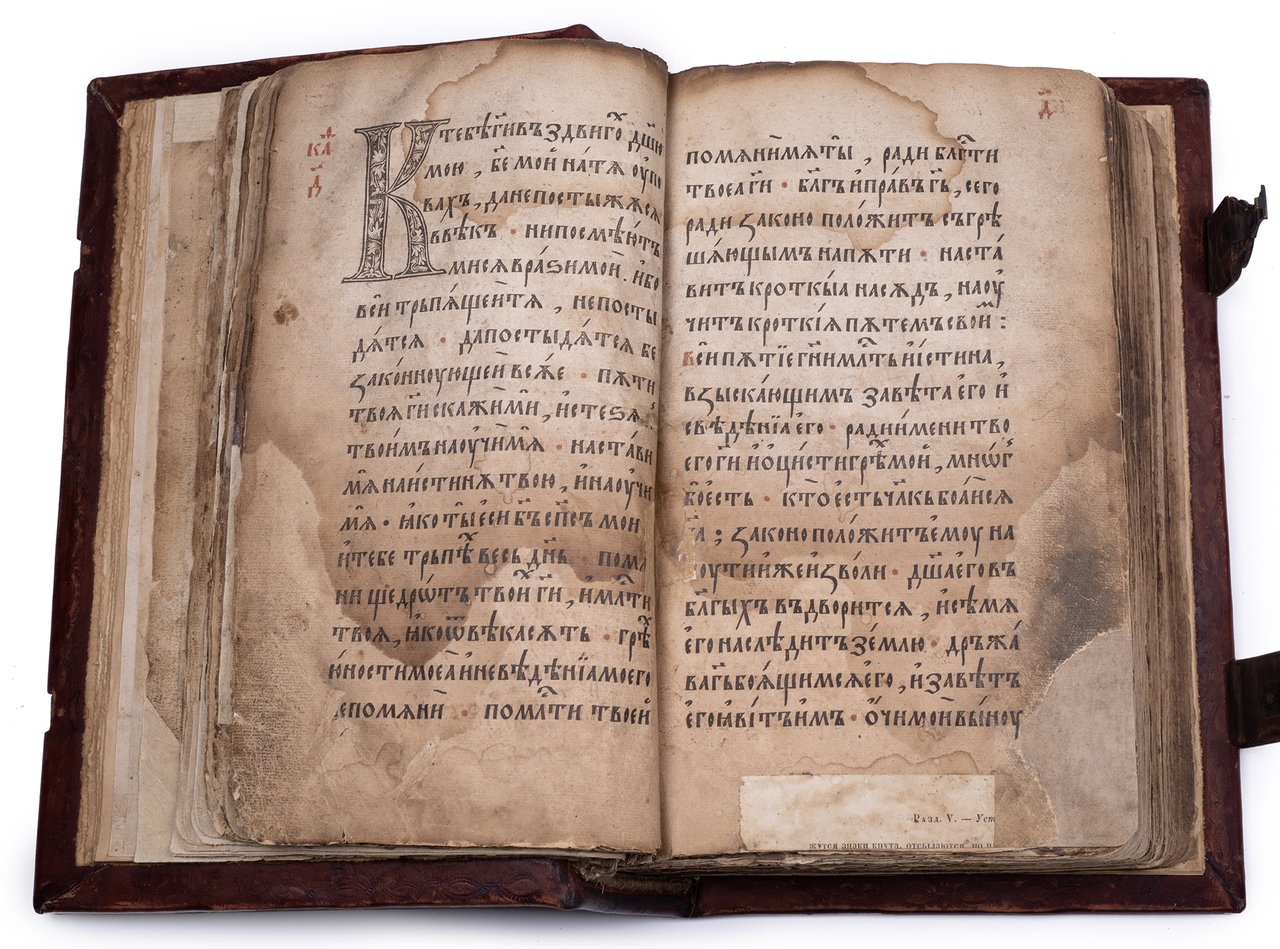 к҃д
д҃
К тебѣ гⷭ҇и въздвиго́х дш҃ю
мою̀ , бж҃е мои̑ на тѧ̀ ѹ҆по
вахъ , да не посты́жѫсѧ
в вѣкъ · ни посмѣю́тъ
ми сѧ врази́ мои̑ . и҆бо
вси̑ трьпѧ́щеи тѧ , не посты
дѧ́тсѧ · да постыдѧ́тсѧ бе
ꙁако́нноующеи̑ всѐ же · пѫти
твоѧ̀ гⷭ҇и скажи́ ми̑ , и҆ стеѕѧ
твои́мъ наѹчи́ мѧ · наста́ви
мѧ̀ на и҆стинѫ твою , и҆ наѹчи
мѧ̀ · ꙗ҆ко ты̀ е҆си бг҃ъ сп҃съ мои
и҆ тебе трьпѣ́х весь дн҃ь · помѧ
ни щедрѡ́тъ твои̑ гⷭ҇и , и҆ млⷭ҇ти
твоѧ , ꙗ҆ко ѿ вѣка сѫть · грѣ́х
ю҆ности моеѧ̀ и҆ невѣ́дѣнїа моего
не помѧни̑ · по млⷭ҇ти твоеи̑
д҃
помѧни́ мѧ ты̀ , ради блгⷭ҇ти
твоеа гⷭ҇и · бл҃гъ и҆ пра́въ гⷭ҇ь , сего
ради ꙁаконо поло́житъ съгрѣ
ша́ющымъ на пѫти · наста́
витъ кро́ткыѧ на сѫдъ , наѹ
чи́тъ кро́ткїѧ пѫтемъ свои́м :
вси̑ пѫтїе гн҃и млⷭ҇ть и҆ и҆стина ,
вꙁыска́ющимъ завѣ́та е҆го и҆
свѣдѣ́нїа е҆го · ради и҆мени тво
его гⷭ҇и и҆ о҆ци́сти грѣх мои̑ , мнѡ́г
бо е҆сть · кто̀ е҆сть чл҃къ боѧ́исѧ
гⷭ҇а ; ꙁаконо поло́житъ е҆моу на
поути и҆же и҆ꙁволи · дш҃а е҆го въ
бл҃гыхъ въдвори́тсѧ , и҆ сѣ́мѧ
е҆го наслѣ́дитъ зе́млю · дръжа́
ва гⷭ҇ь боѧ́щимсѧ е҆го , и҆ завѣ́тъ
е҆го ꙗ҆ви́тъ и҆мъ · о҆́чи мои̑ вы́ноу
Разд. V. — Уст
жутся знаки круга, отсылаются, но н